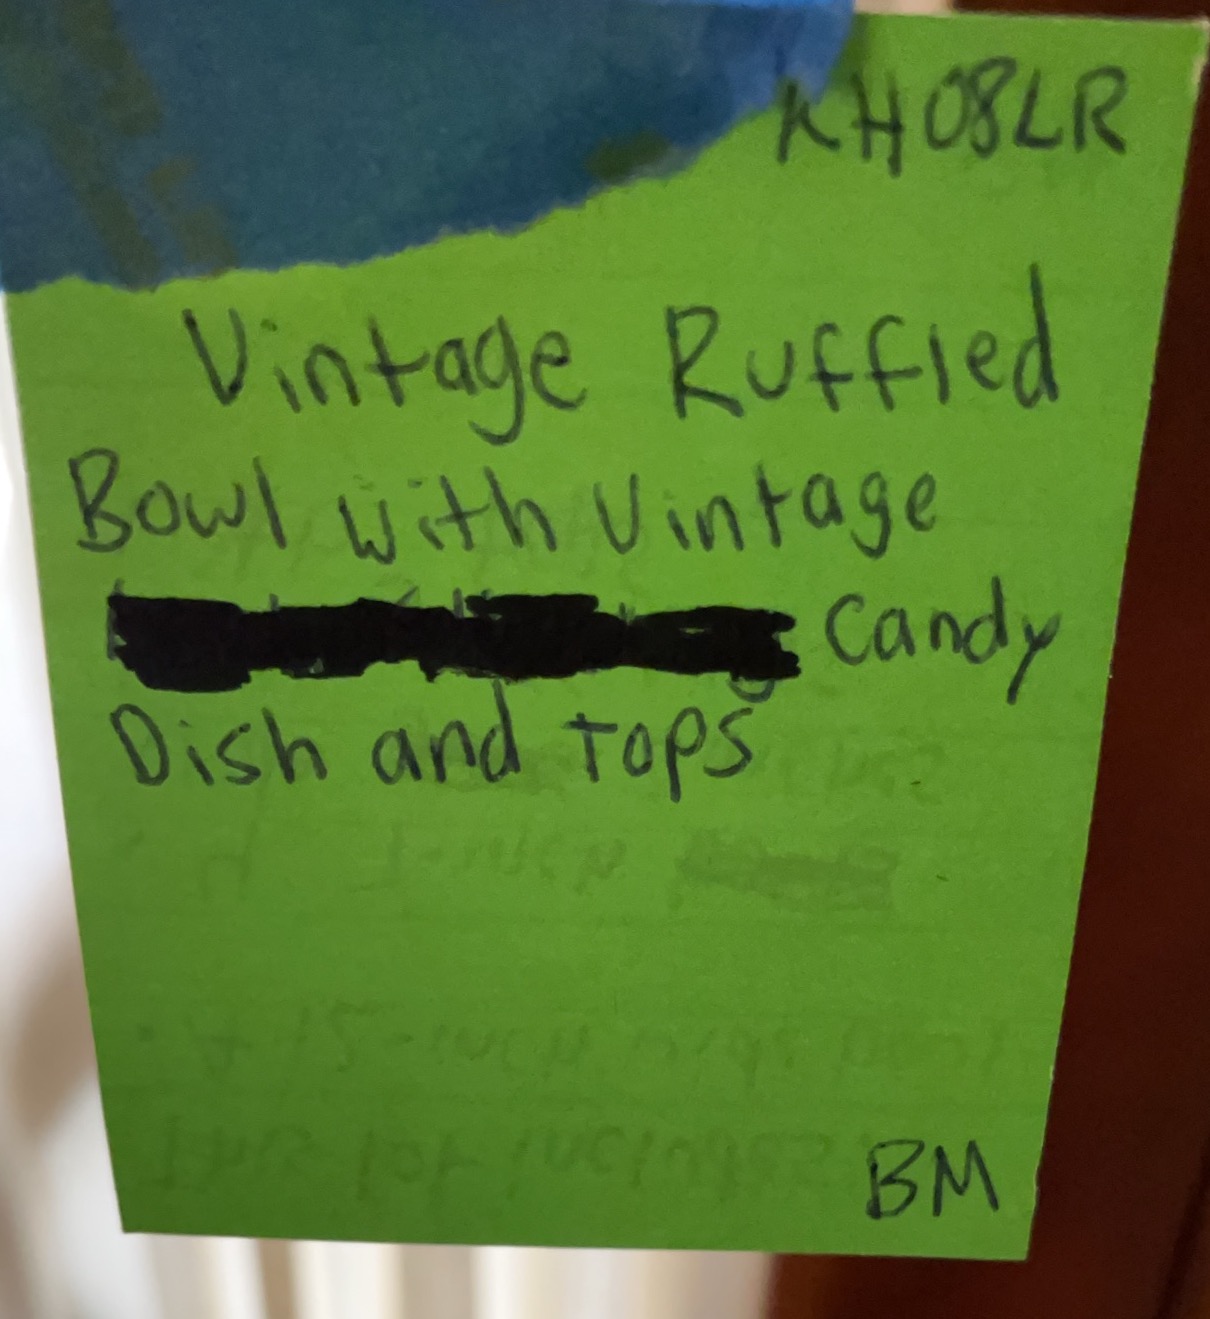 KH08LR
Vintage Ruffled
Bowl with Vintage
Candy
Dish and Tops
BM